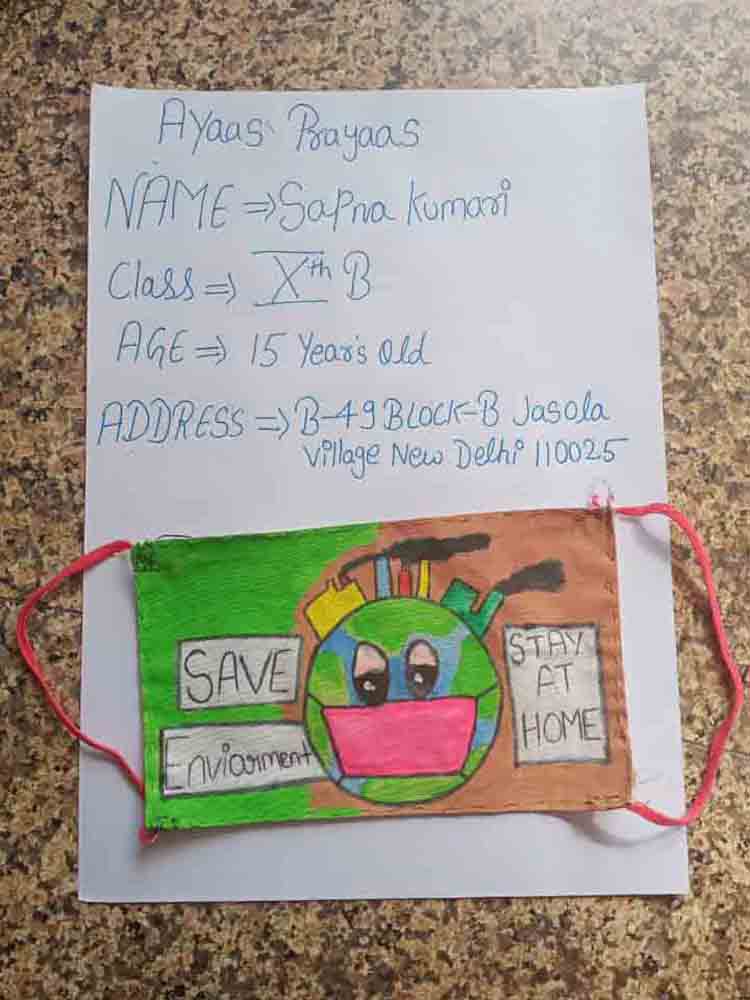 Ayaas Prayaas
NAME ⇒ Sapna Kumari
Class ⇒ Xth B
AGE ⇒ 15 Year's Old
ADDRESS ⇒ B-49 BLOCK-B Jasola
Village New Delhi 110025
SAVE
Enviorment
STAY
AT
HOME